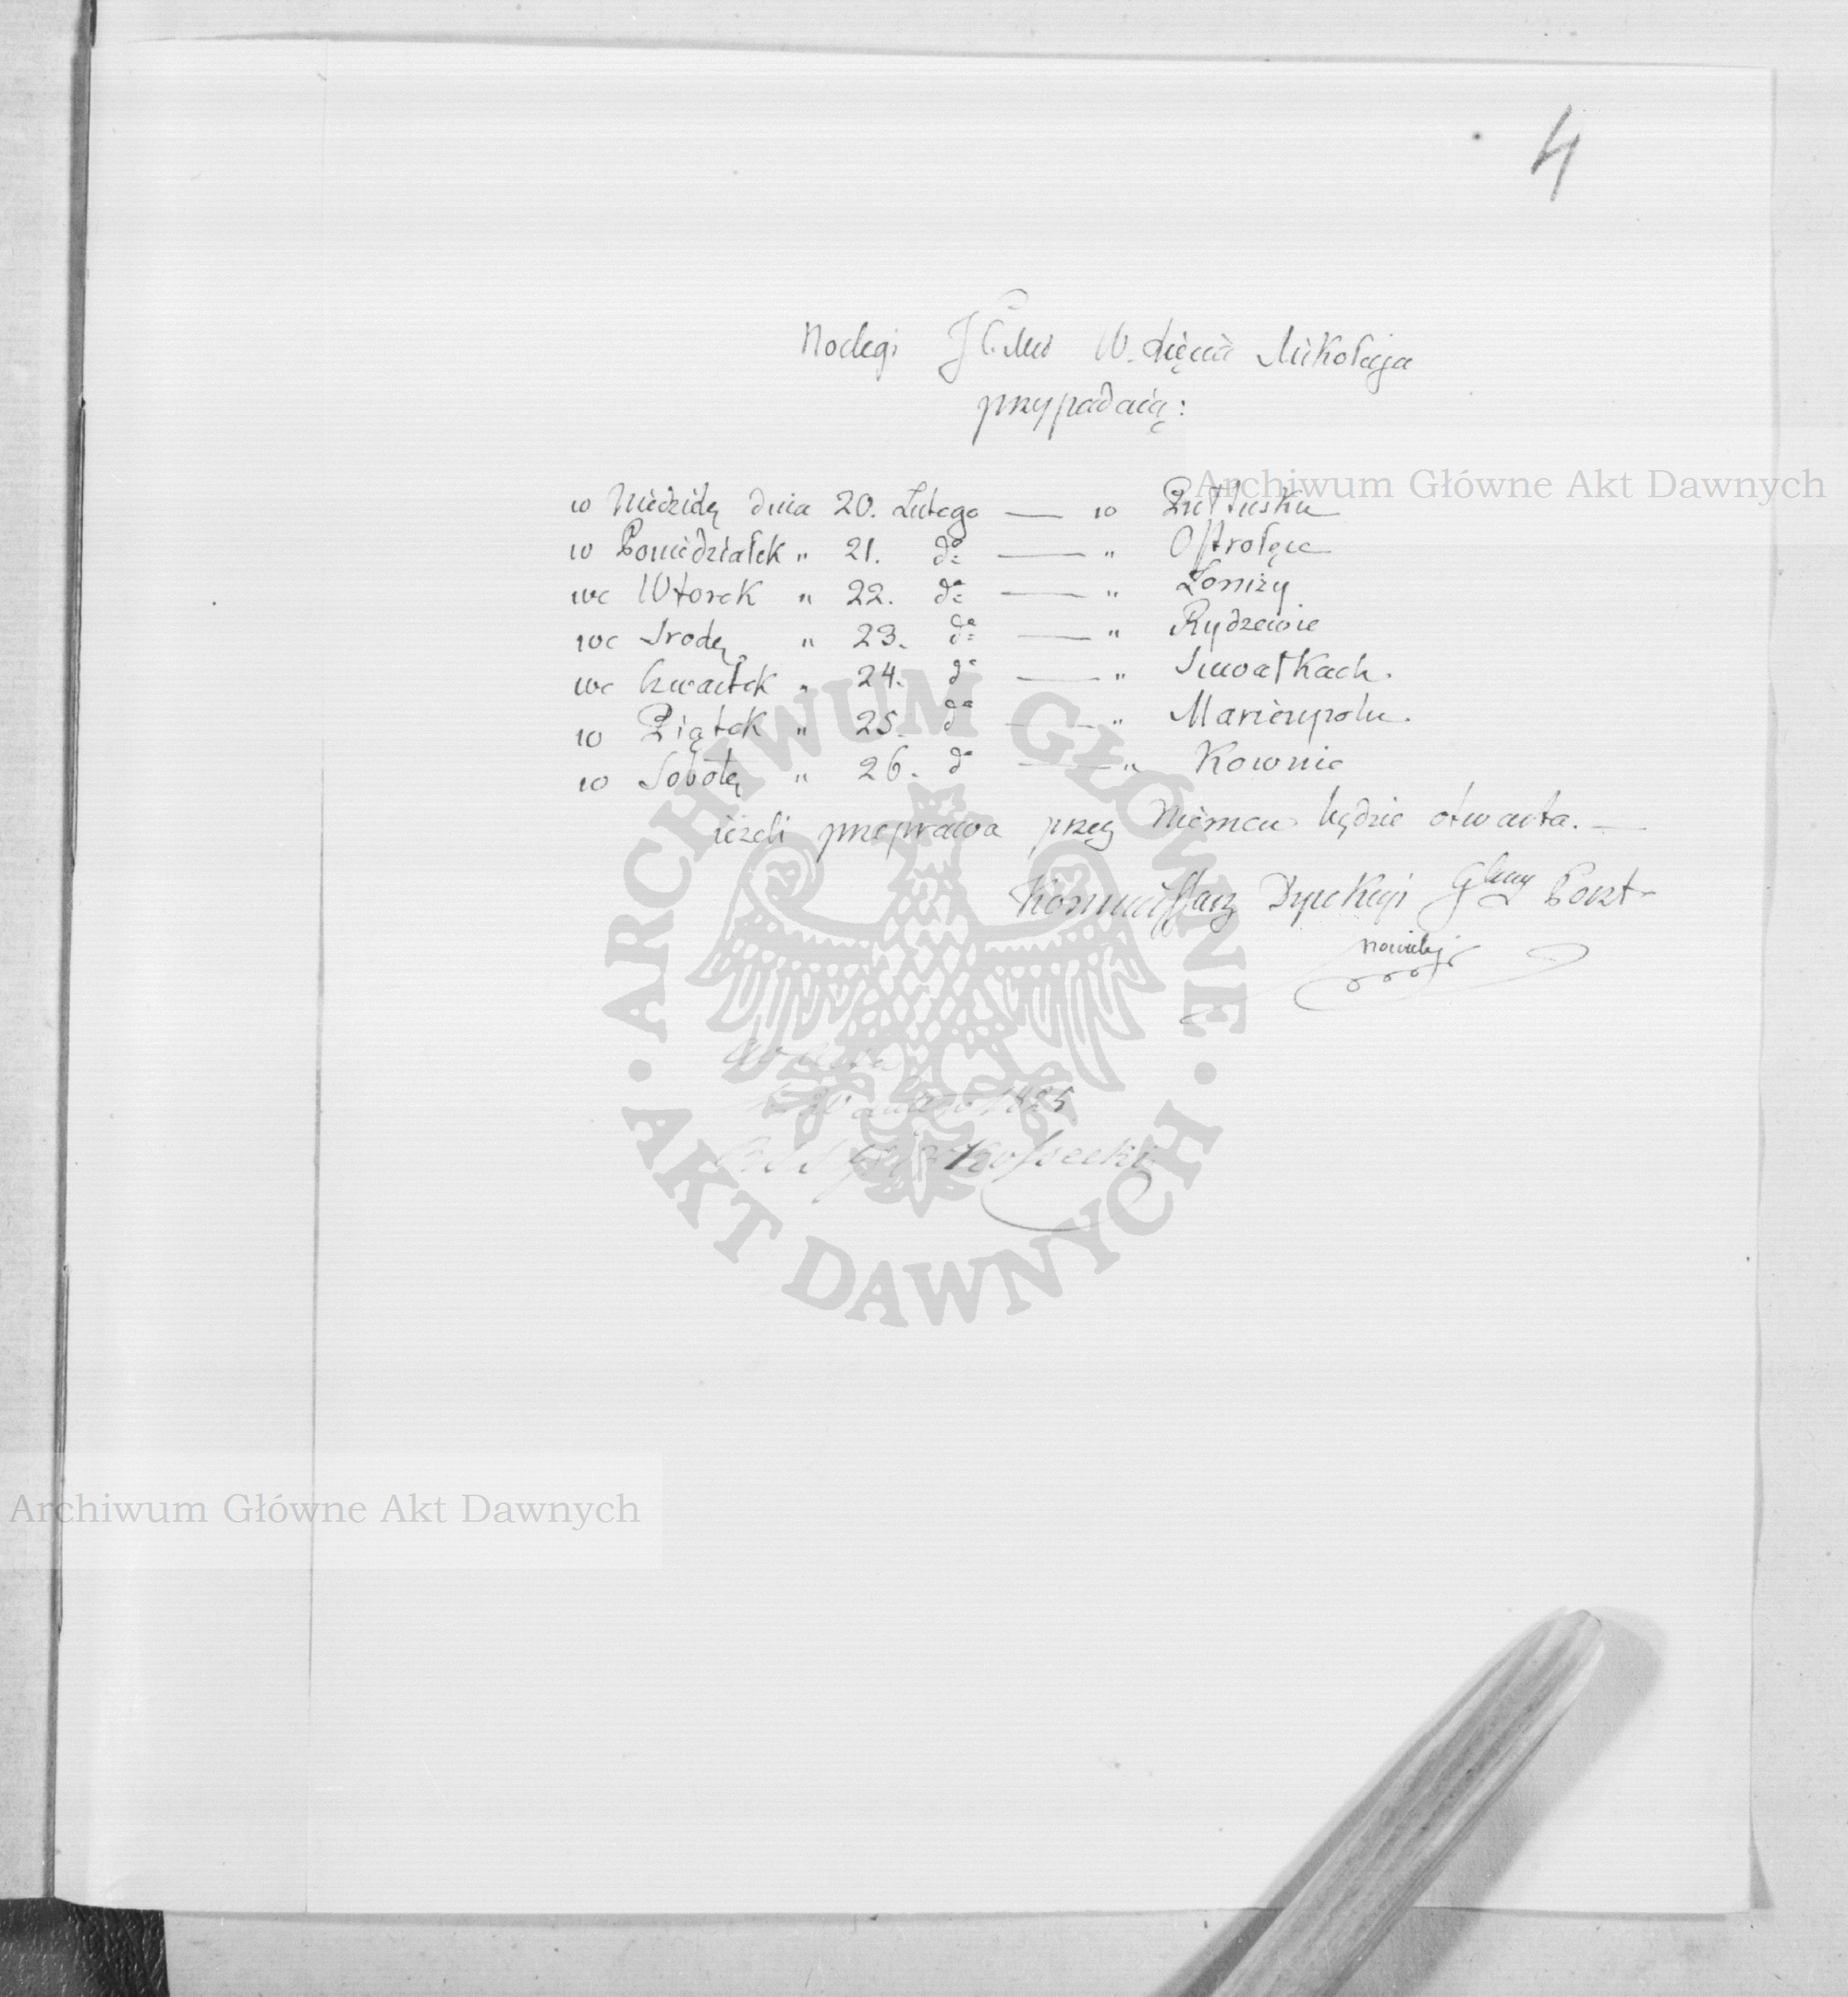 4
Noclegi J C Mci W. Xięcia Mikołaja
przypadaią:
w Niedzielę dnia 20. Lutego — w Pułtusku
w Poniedziałek " 21. do — " Ostrołęce
we Wtorek " 22. do — " Łomży
we Srodę " 23. do — " Rydzewie
we Czwartek " 24. do — " Suwałkach.
w Piątek " 25. do — " Maryempolu.
w Sobotę " 26. do — " Kownie
ieżeli przeprawa przez Niemen będzie otwarta. —
Kommissarz Dyrekcyi Głney Poczt
Archiwum Główne Akt Dawnych
ARCHIWUM GŁÓWNE
• AKT DAWNYCH •
20 Lutego 1825
Kossecki
Archiwum Główne Akt Dawnych